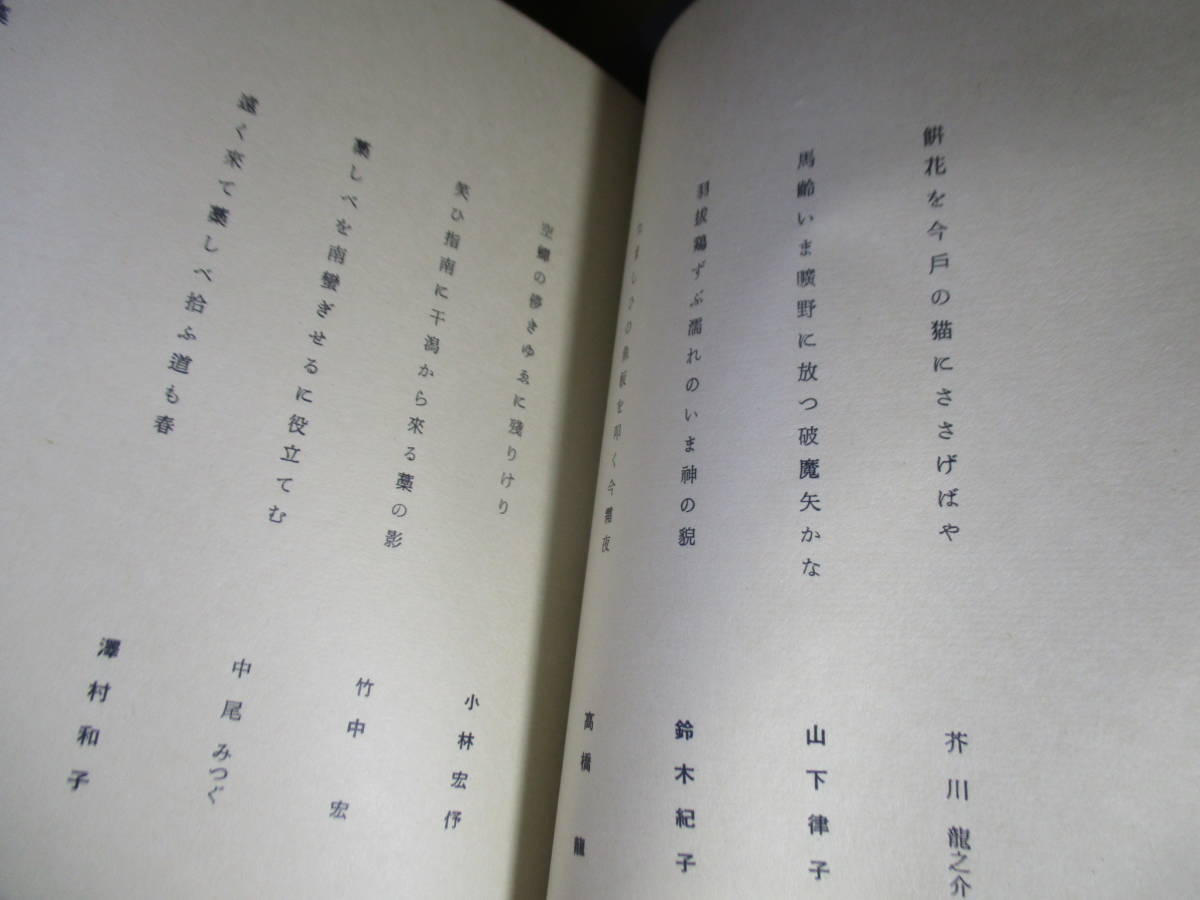 餠花を今戸の猫にささげばや
芥川龍之介
馬齡いま曠野に放つ破魔矢かな
山下律子
羽拔鶏ずぶ濡れのいま神の貌
鈴木紀子
を叩く今霜夜
高橋龍
空蟬の儚きゆゑに殘りけり
小林宏伃
笑ひ指南に干潟から來る藁の影
竹中宏
藁しべを南蠻ぎせるに役立てむ
中尾みつぐ
遠く来て藁しべ拾ふ道も春
澤村和子